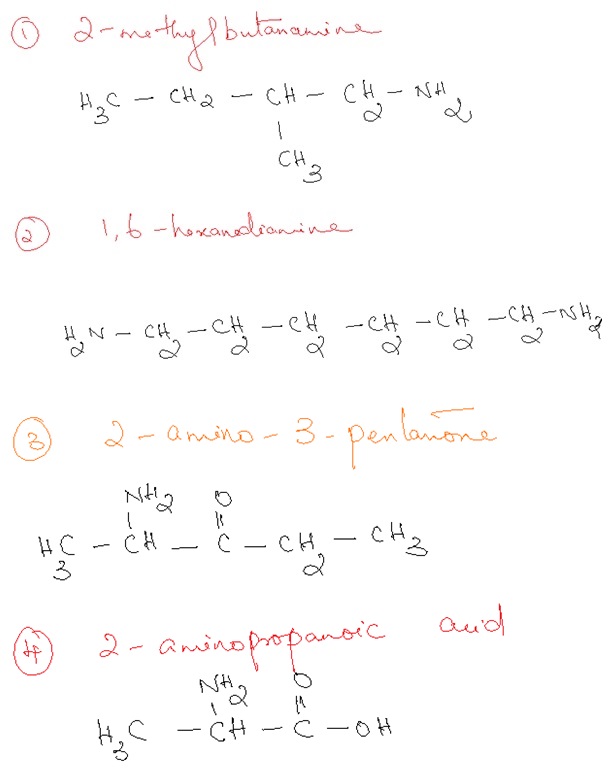 ① 2-methylbutanamine
H3C - CH2 - CH - CH2 - NH2
|
CH3
② 1,6-hexanediamine
H2N - CH2 - CH2 - CH2 - CH2 - CH2 - CH2 - NH2
③ 2-amino-3-pentanone
NH2 O
| ||
H3C - CH - C - CH2 - CH3
④ 2-aminopropanoic acid
NH2 O
| ||
H3C - CH - C - OH